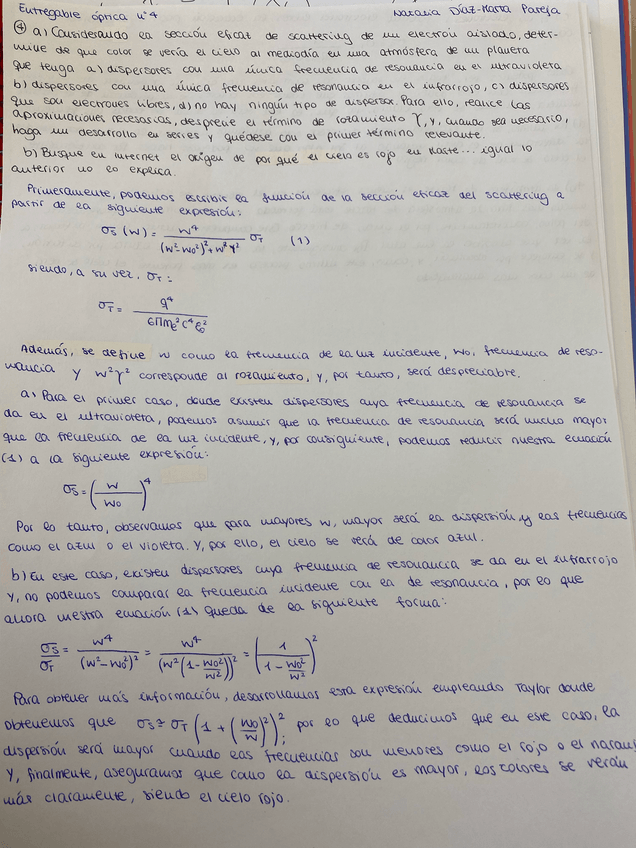 Entregable óptica nº4 Natalia Díaz-Marta Pareja
④ a) Considerando la sección eficaz de scattering de un electrón aislado, deter-
mine de que color se vería el cielo al mediodía en una atmósfera de un planeta
que tenga a) dispersores con una única frecuencia de resonancia en el ultravioleta
b) dispersores con una única frecuencia de resonancia en el infrarrojo, c) dispersores
que son electrones libres, d) no hay ningún tipo de dispersor. Para ello, realice las
aproximaciones necesarias, desprecie el término de rozamiento γ, y, cuando sea necesario,
haga un desarrollo en series y quédese con el primer término relevante.
b) Busque en internet el origen de por qué el cielo es rojo en Marte... igual lo
anterior no lo explica.
Primeramente, podemos escribir la función de la sección eficaz del scattering a
partir de la siguiente expresión:
σs (w) = w⁴ / ((w²-w0²)² + w²γ²) σT (1)
siendo, a su vez, σT:
σT = q⁴ / (6Πme²c⁴ε0²)
Además, se define w como la frecuencia de la luz incidente, w0, frecuencia de reso-
nancia y w²γ² corresponde al rozamiento, y, por tanto, será despreciable.
a) Para el primer caso, donde existen dispersores cuya frecuencia de resonancia se
da en el ultravioleta, podemos asumir que la frecuencia de resonancia será mucho mayor
que la frecuencia de la luz incidente, y, por consiguiente, podemos reducir nuestra ecuación
(1) a la siguiente expresión:
σs = (w / w0)⁴
Por lo tanto, observamos que para mayores w, mayor será la dispersión y las frecuencias
como el azul o el violeta. Y, por ello, el cielo se verá de color azul.
b) En este caso, existen dispersores cuya frecuencia de resonancia se da en el infrarrojo
y, no podemos comparar la frecuencia incidente con la de resonancia, por lo que
ahora nuestra ecuación (1) queda de la siguiente forma:
σs / σT = w⁴ / (w²-w0²)² = w⁴ / (w²(1 - w0²/w²))² = (1 / (1 - w0²/w²))²
Para obtener más información, desarrollamos esta expresión empleando Taylor donde
obtenemos que σs ≈ σT (1 + (w0/w)²)²; por lo que deducimos que en este caso, la
dispersión será mayor cuando las frecuencias son menores como el rojo o el naran
Y, finalmente, aseguramos que como la dispersión es mayor, los colores se verán
más claramente, siendo el cielo rojo.